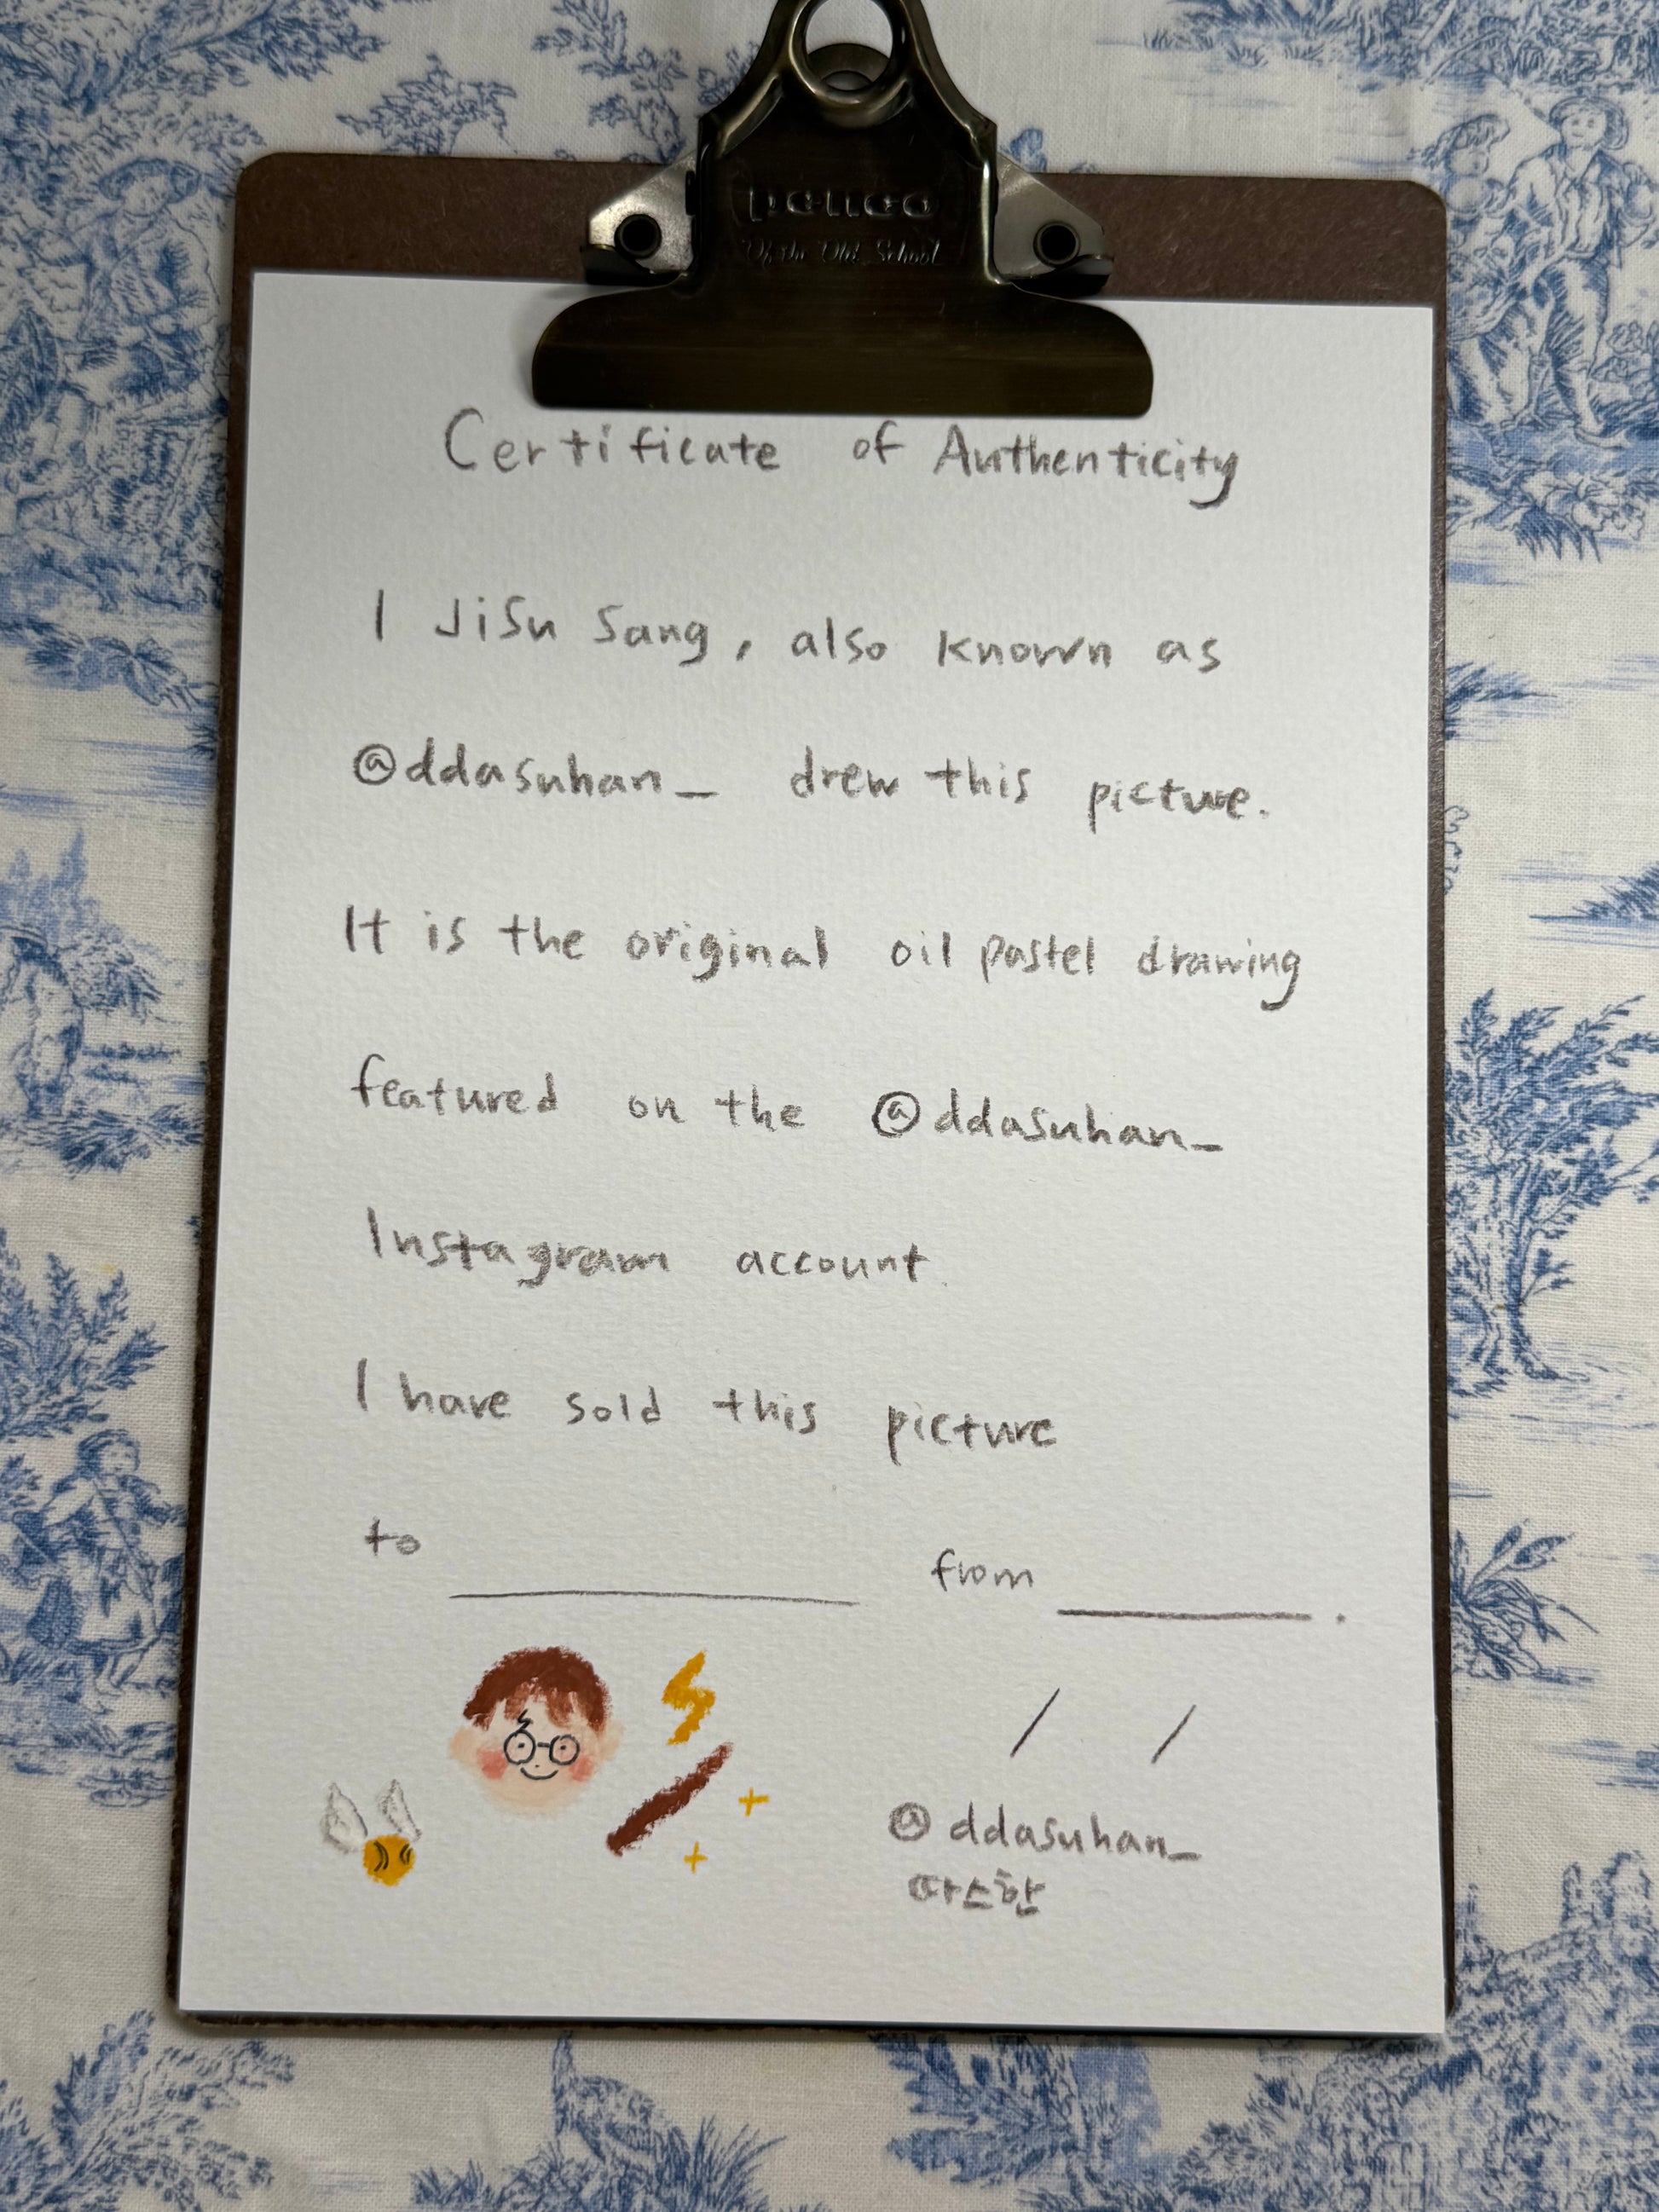 penco
Of the Old School
Certificate of Authenticity
I JiSu Sang, also known as
@ddasuhan_ drew this picture.
It is the original oil pastel drawing
featured on the @ddasuhan_
Instagram account.
I have sold this picture
to ____________ from ________.
/ /
@ddasuhan_
따스한